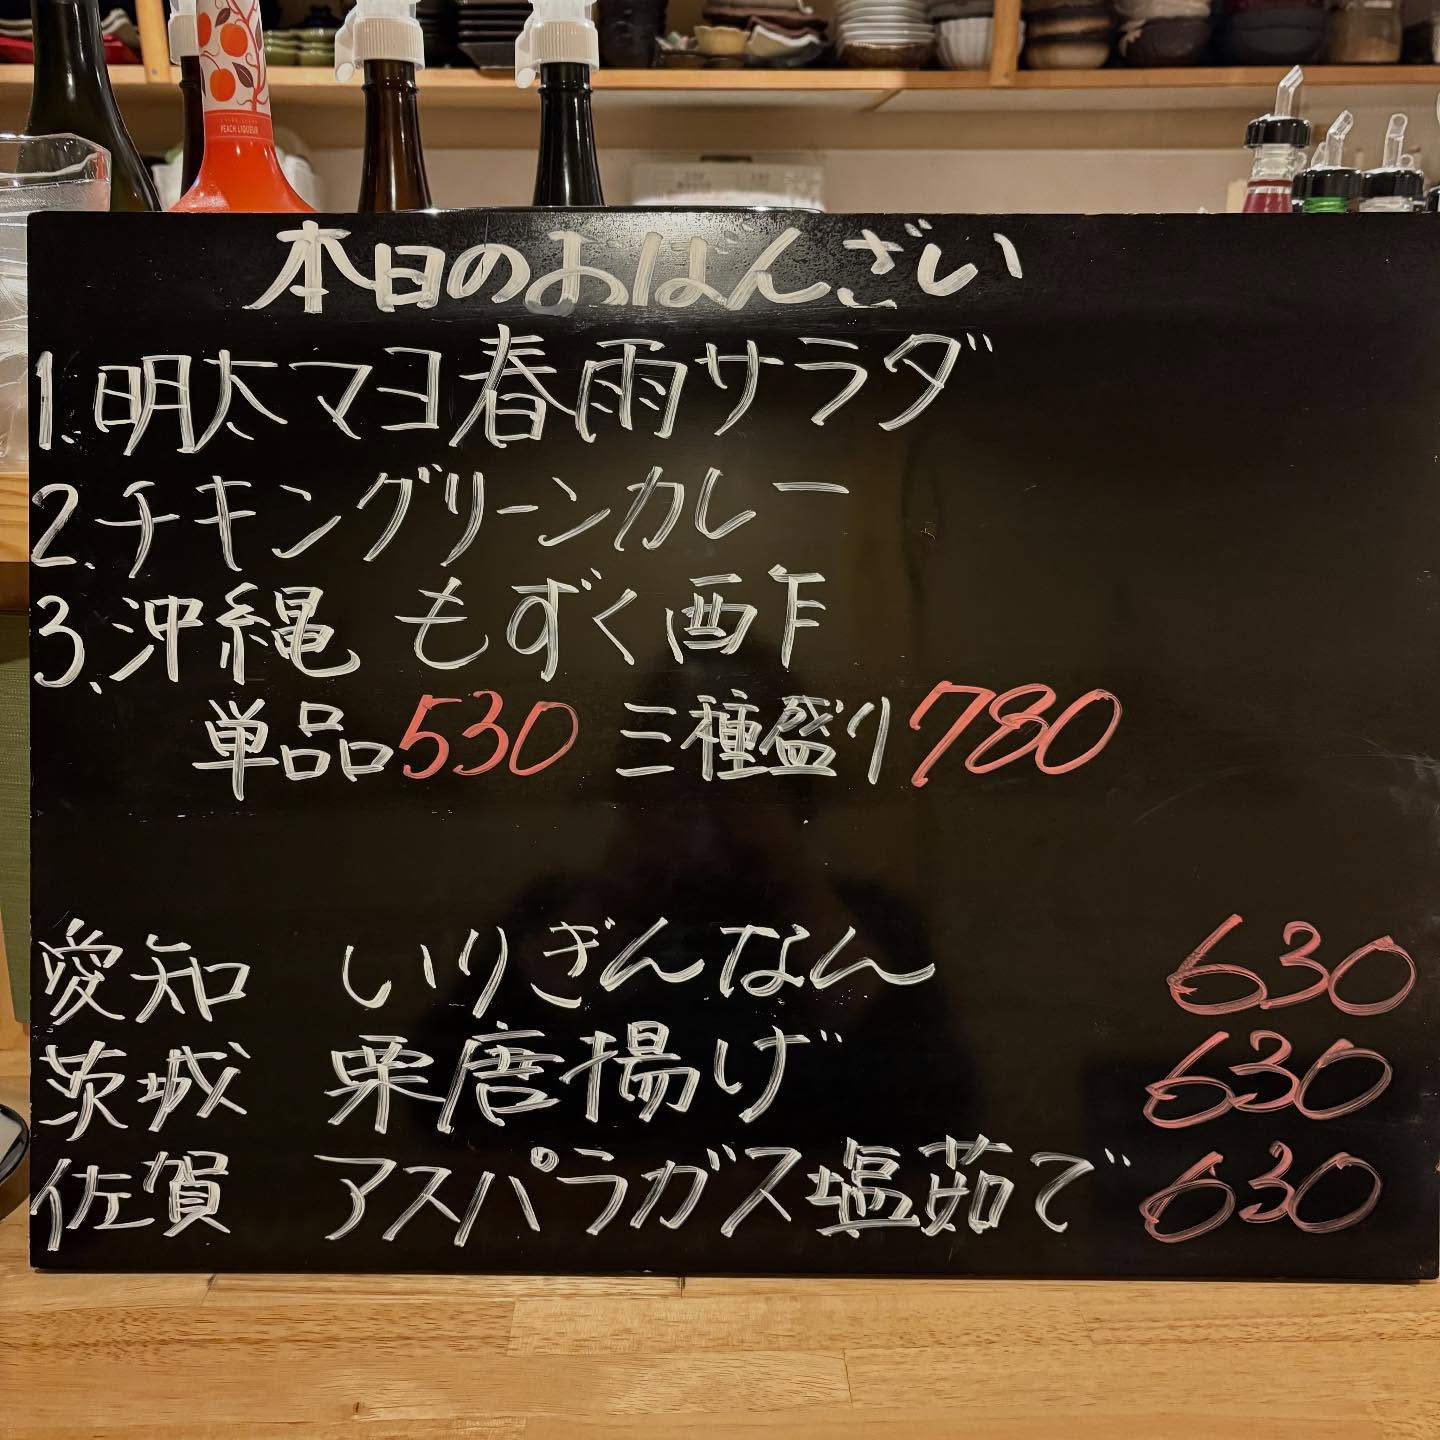 PEACH LIQUEUR
本日のおばんざい
1.明太マヨ春雨サラダ
2.チキングリーンカレー
3.沖縄 もずく酢
単品530 三種盛り780
愛知 いりぎんなん 630
茨城 栗唐揚げ 630
佐賀 アスパラガス塩茹で 630